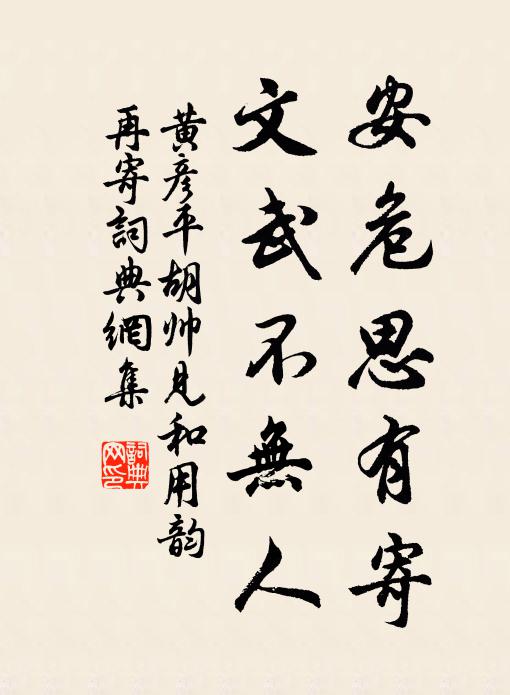 安危思有寄
文武不無人
黄彦平胡帅見和用韵
再寄詞典網集
詞典網印